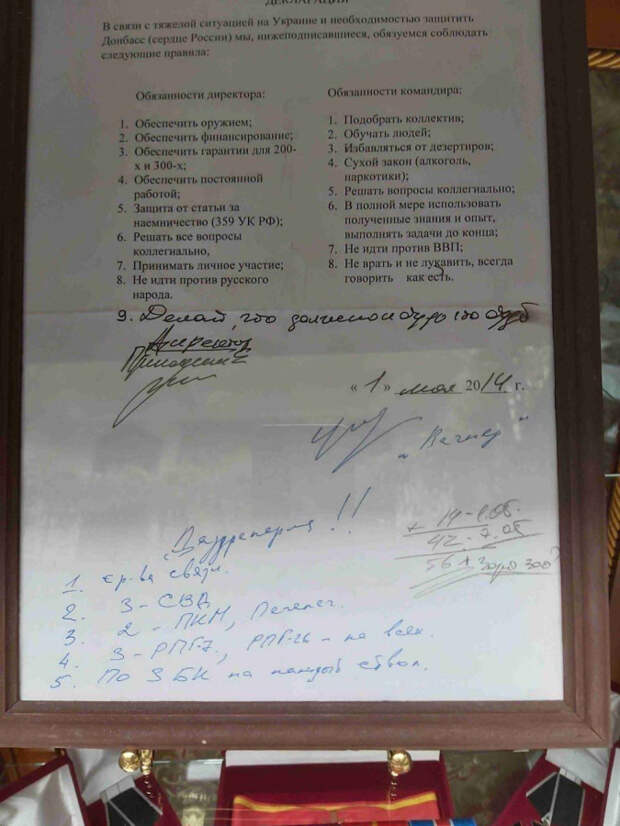 ДЕКЛАРАЦИЯ
В связи с тяжелой ситуацией на Украине и необходимостью защитить
Донбасс (сердце России) мы, нижеподписавшиеся, обязуемся соблюдать
следующие правила:
Обязанности директора:
1. Обеспечить оружием;
2. Обеспечить финансирование;
3. Обеспечить гарантии для 200-
х и 300-х;
4. Обеспечить постоянной
работой;
5. Защита от статьи за
наемничество (359 УК РФ);
6. Решать все вопросы
коллегиально,
7. Принимать личное участие;
8. Не идти против русского
народа.
Обязанности командира:
1. Подобрать коллектив;
2. Обучать людей;
3. Избавляться от дезертиров;
4. Сухой закон (алкоголь,
наркотики);
5. Решать вопросы коллегиально;
6. В полной мере использовать
полученные знания и опыт,
выполнять задачи до конца;
7. Не идти против ВВП;
8. Не врать и не лукавить, всегда
говорить как есть.
9. Делай, что должно и будь что будет
Директор
Пригожин Е
« 1 » мая 2014 г.
„Вагнер"
!!
1. ср-ва связи.
2. 3 - СВД
3. 2 - ПКМ, Печенег.
4. 3 - РПГ-7, РПГ-26 - на всех.
5. По 3 БК на каждый ствол.
+ 14 - 1.05.
42 - 7.05
561